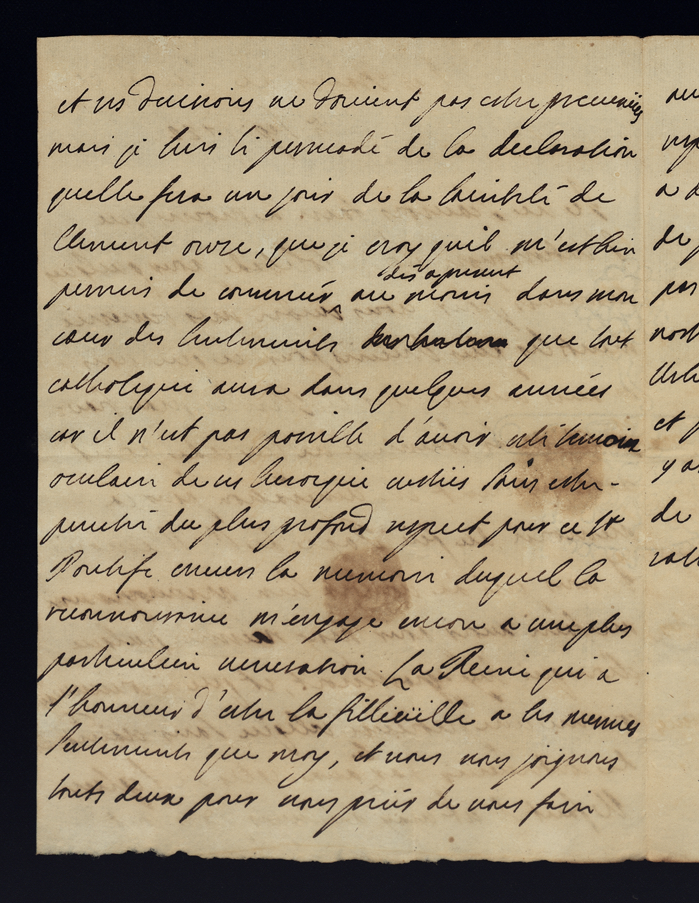 et ses decisions ne doivent pas estre prevenües
mais je suis si persuadé de la declaration
quelle fera un jour de la sainteté de
Clement onze, que je croy quil m'est bien
permis de commencer des apresent au moins dans mon
cœur des sentiments que tout
catholique aura dans quelques années
car il n'est pas possible d'avoir esté temoin
oculaire de ces heroique vertus sans estre
penetré du plus profond respect pour ce St
Pontife envers la memoire duquel la
reconnoissance m'engage encore a une plus
particuliere veneration. La Reine qui a
l'honneur d'estre la fillieülle a les mesmes
sentiments que moy, et nous nous joignons
touts deux pour vous prier de nous faire